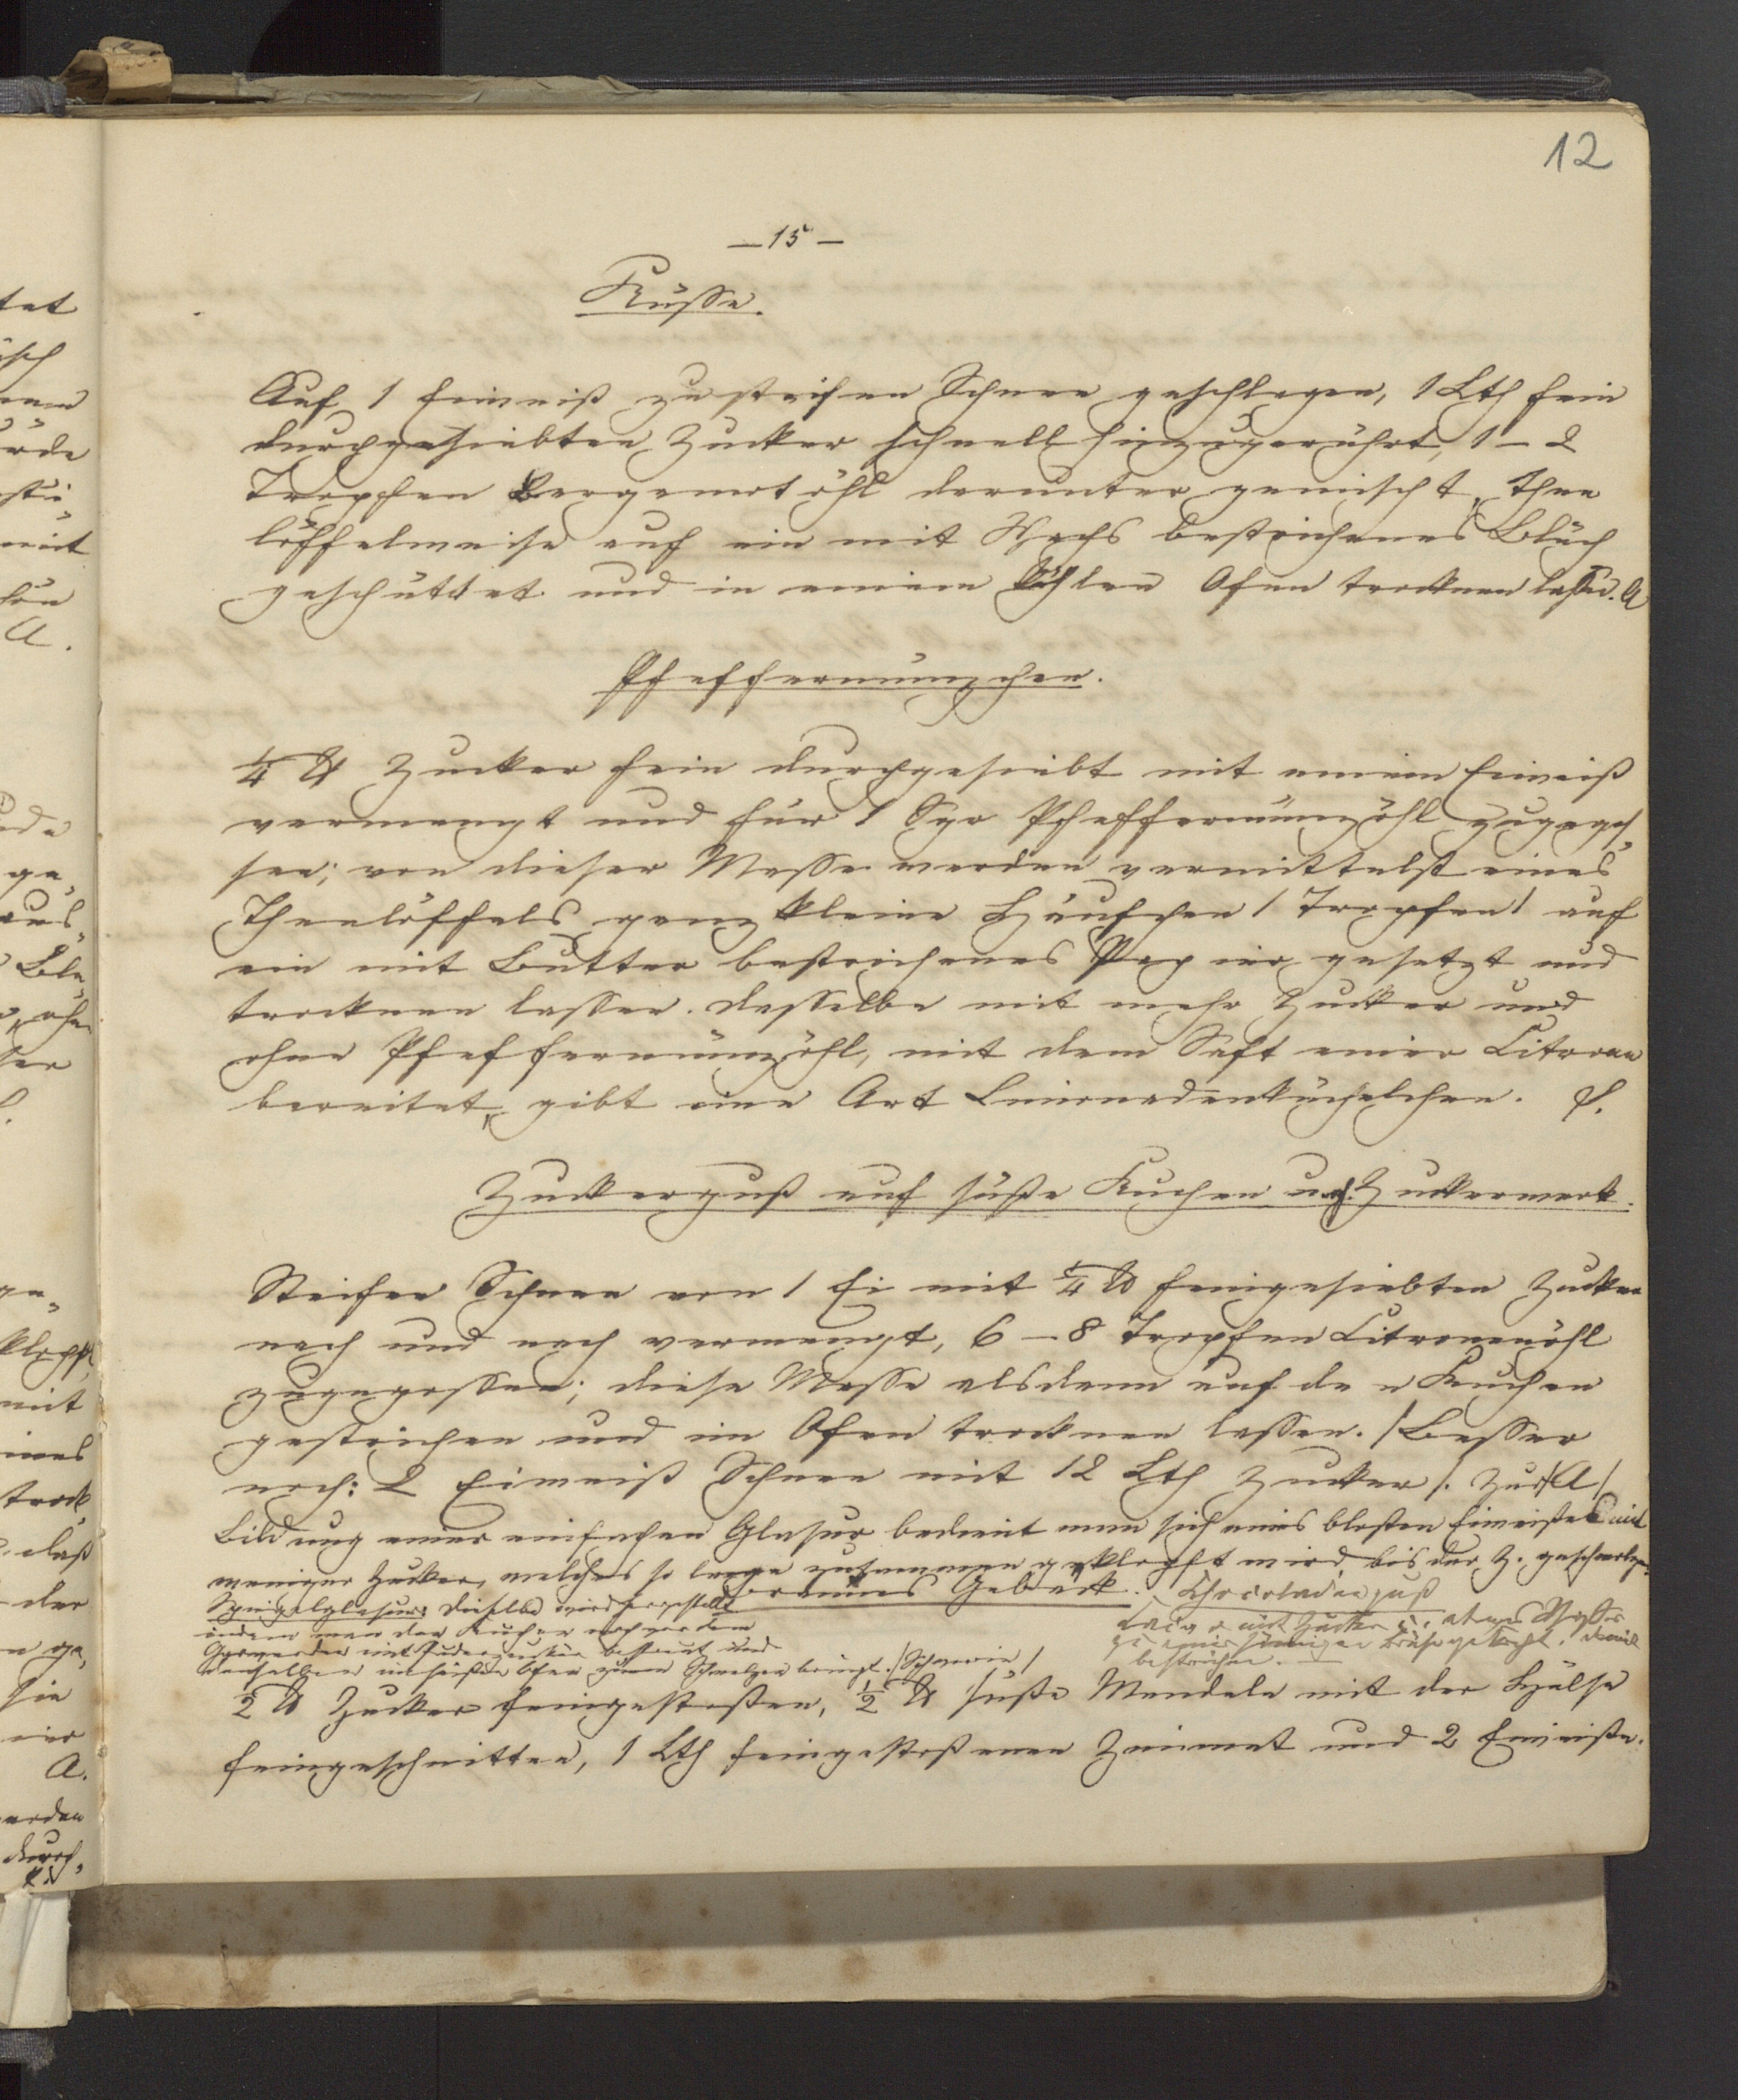 12
— 15 —
Küsse.
Auf 1 Eiweiß zu steifen Schnee geschlagen, 1 Lth fein
durchgesiebten Zucker schnell hinzugerührt, 1 – 2
Tropfen Bergamotöhl darunter gemischt, Thee
löffelweise auf ein mit Wachs bestrichenes Bläch
geschüttet und in einem kühlen Ofen trocknen lassen. A
Pfeffermünzchen.
1/4 ℔ Zucker fein durchgesiebt mit einem Eiweiß
vermengt und für 1 Sgr Pfeffermünzöhl zugegos„
sen; von dieser Masse werden vermittelst eines
Theelöffels ganz kleine Häufchen / Tropfen / auf
ein mit Butter bestrichenes Papier gesetzt und
trocknen lassen. dasselbe mit mehr Zucker und
ohne Pfeffermünzöhl, mit dem Saft einer Citrone
bereitet, gibt eine Art Limonadenküchelchen. S.
Zuckerguß auf süße Kuchen und Zuckerwerk.
Steifen Schnee von 1 Ei mit 1/4 ℔ feingesiebten Zucker
nach und nach vermengt, 6 – 8 Tropfen Citronenöhl
zugegossen; diese Masse alsdann auf den Kuchen
gestrichen und im Ofen trocknen lassen. / Besser
noch: 2 Eiweiß Schnee mit 12 Lth Zucker /. Zur / A /
Bildung einer einfachen Glasur bedient man sich eines bloßen Eiweißes mit
weniger Zucker, welches so lange zusammen geklopft wird bis der Z. geschmolzen.
Braunes Gebäck. Chocoladenguß
Spiegelglasur: dieselbe wird hergestellt
indem man den Kuchen noch vor dem
Garwerden mit Puderzucker bestreut und
denselben im heißen Ofen zum Schmelzen bringt. / Schwerin /
mit Zucker u. etwas Wasser
zu einer gekocht, damit
bestrichen. —
1/2 ℔ Zucker feingestoßen, 1/2 ℔ süße Mandeln mit der Hülse
feingeschnitten, 1 Lth feingestoßenen Zimmet und 2 Eiweiße.